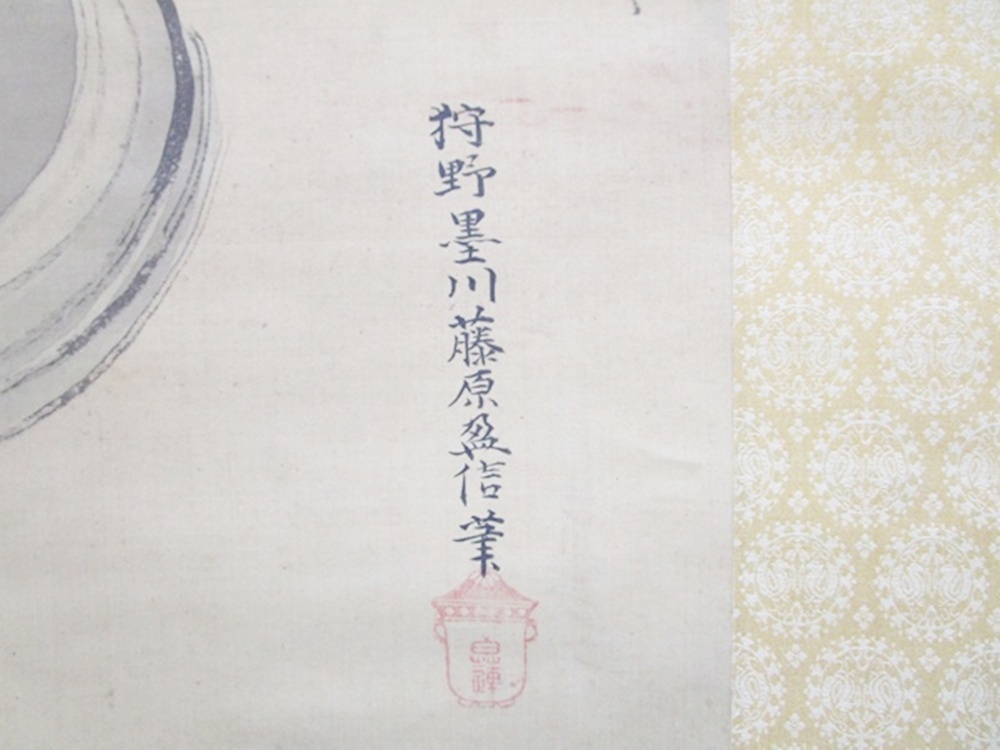 狩野墨川藤原盈信筆